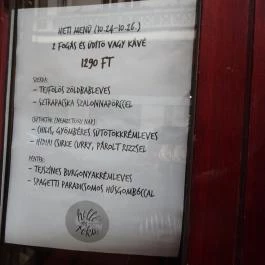 HETI MENÜ (10.24-10.26.)
2 FOGÁS ÉS ÜDÍTŐ VAGY KÁVÉ
1290 FT
SZERDA:
- TEJFÖLÖS ZÖLDBABLEVES
- SZTRAPACSKA SZALONNAPÖRCCEL
CSÜTÖRTÖK (NEMZETKÖZI NAP)
- CHILIS, GYÖMBÉRES SÜTŐTÖKKRÉMLEVES
- INDIAI CSIRKE CURRY, PÁROLT RIZZSEL
PÉNTEK:
- TEJSZÍNES BURGONYAKRÉMLEVES
- SPAGETTI PARADICSOMOS HÚSGOMBÓCCAL